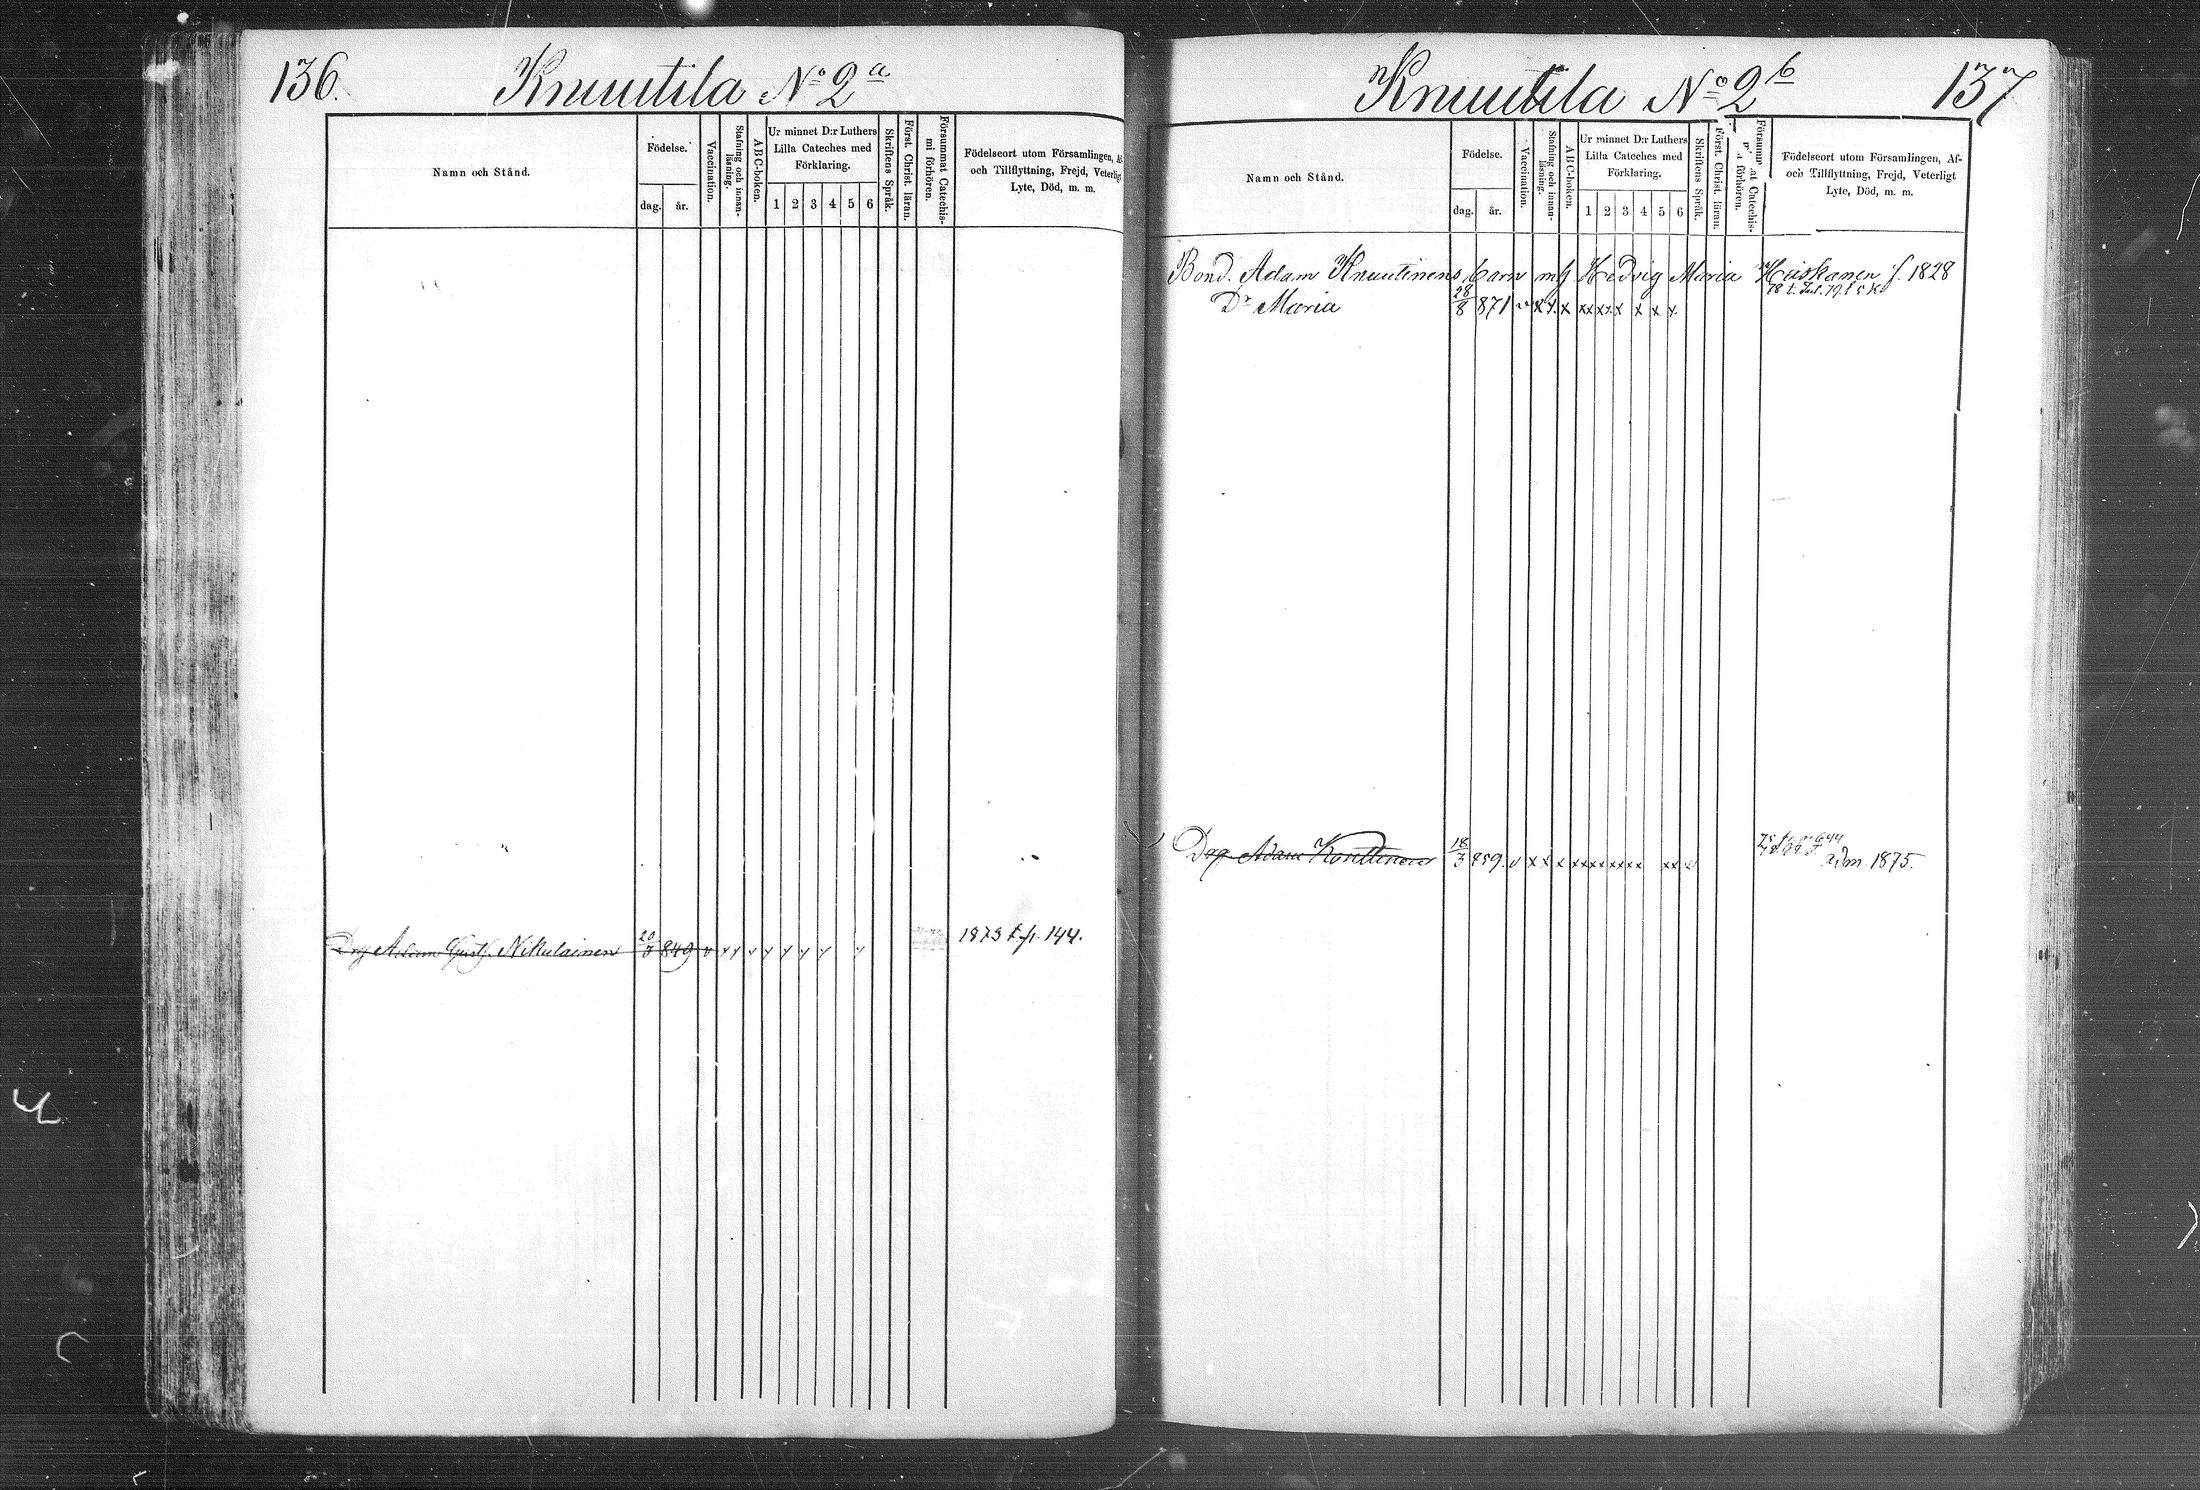 136.
Knuutila No 2 a
Namn och Stånd.
Födelse.
dag.
år.
Vaccination.
Stafning och innan-
läsning.
ABC-boken.
Ur minnet D:r Luthers
Lilla Cateches med
Förklaring.
1 2 3 4 5 6
Skriftens Språk.
Först. Christ. läran.
Försummat Catechis-
mi förhören.
Födelseort utom Församlingen, Af-
och Tillflyttning, Frejd, Veterligt
Lyte, Död, m. m.
Drg Adam Gust. Nikulainen 20/3 849 v x x v x x x x x 1873 t. p. 144.
Knuutila No 2 b
137
Namn och Stånd.
Födelse.
dag.
år.
Vaccination.
Stafning och innan-
läsning.
ABC-boken.
Ur minnet D:r Luthers
Lilla Cateches med
Förklaring.
1 2 3 4 5 6
Skriftens Språk.
Först. Christ. läran.
Försummat Catechis-
förhören.
Födelseort utom Församlingen, Af-
och Tillflyttning, Frejd, Veterligt
Lyte, Död, m. m.
Bond. Adam Knuutinens barn mf Hedvig Maria Huiskonen f. 1828
Dr Maria 28/8 871 v x x x xx xx x x x x
Drg Adam Konttinen 18/3 859. v x x x xx xx xx xx xx
adm 1875.